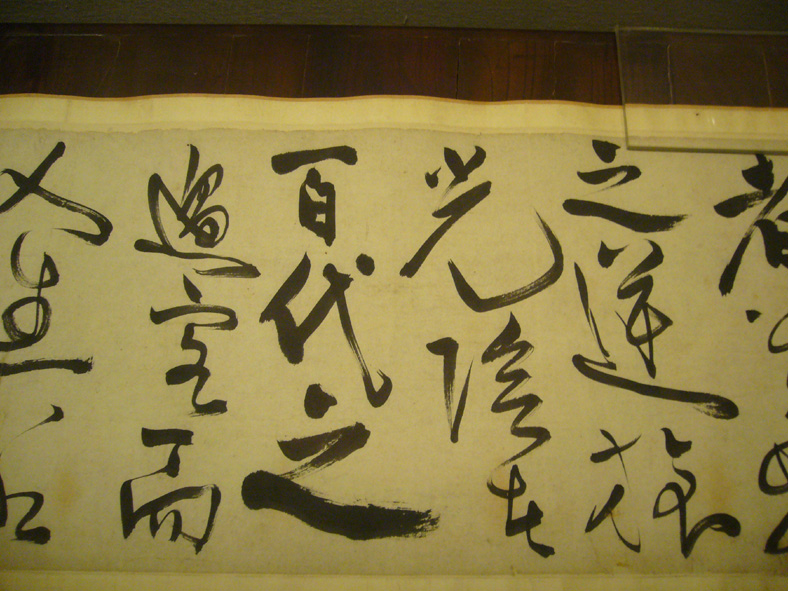 者
之逆旅
光陰者
百代之
過客而